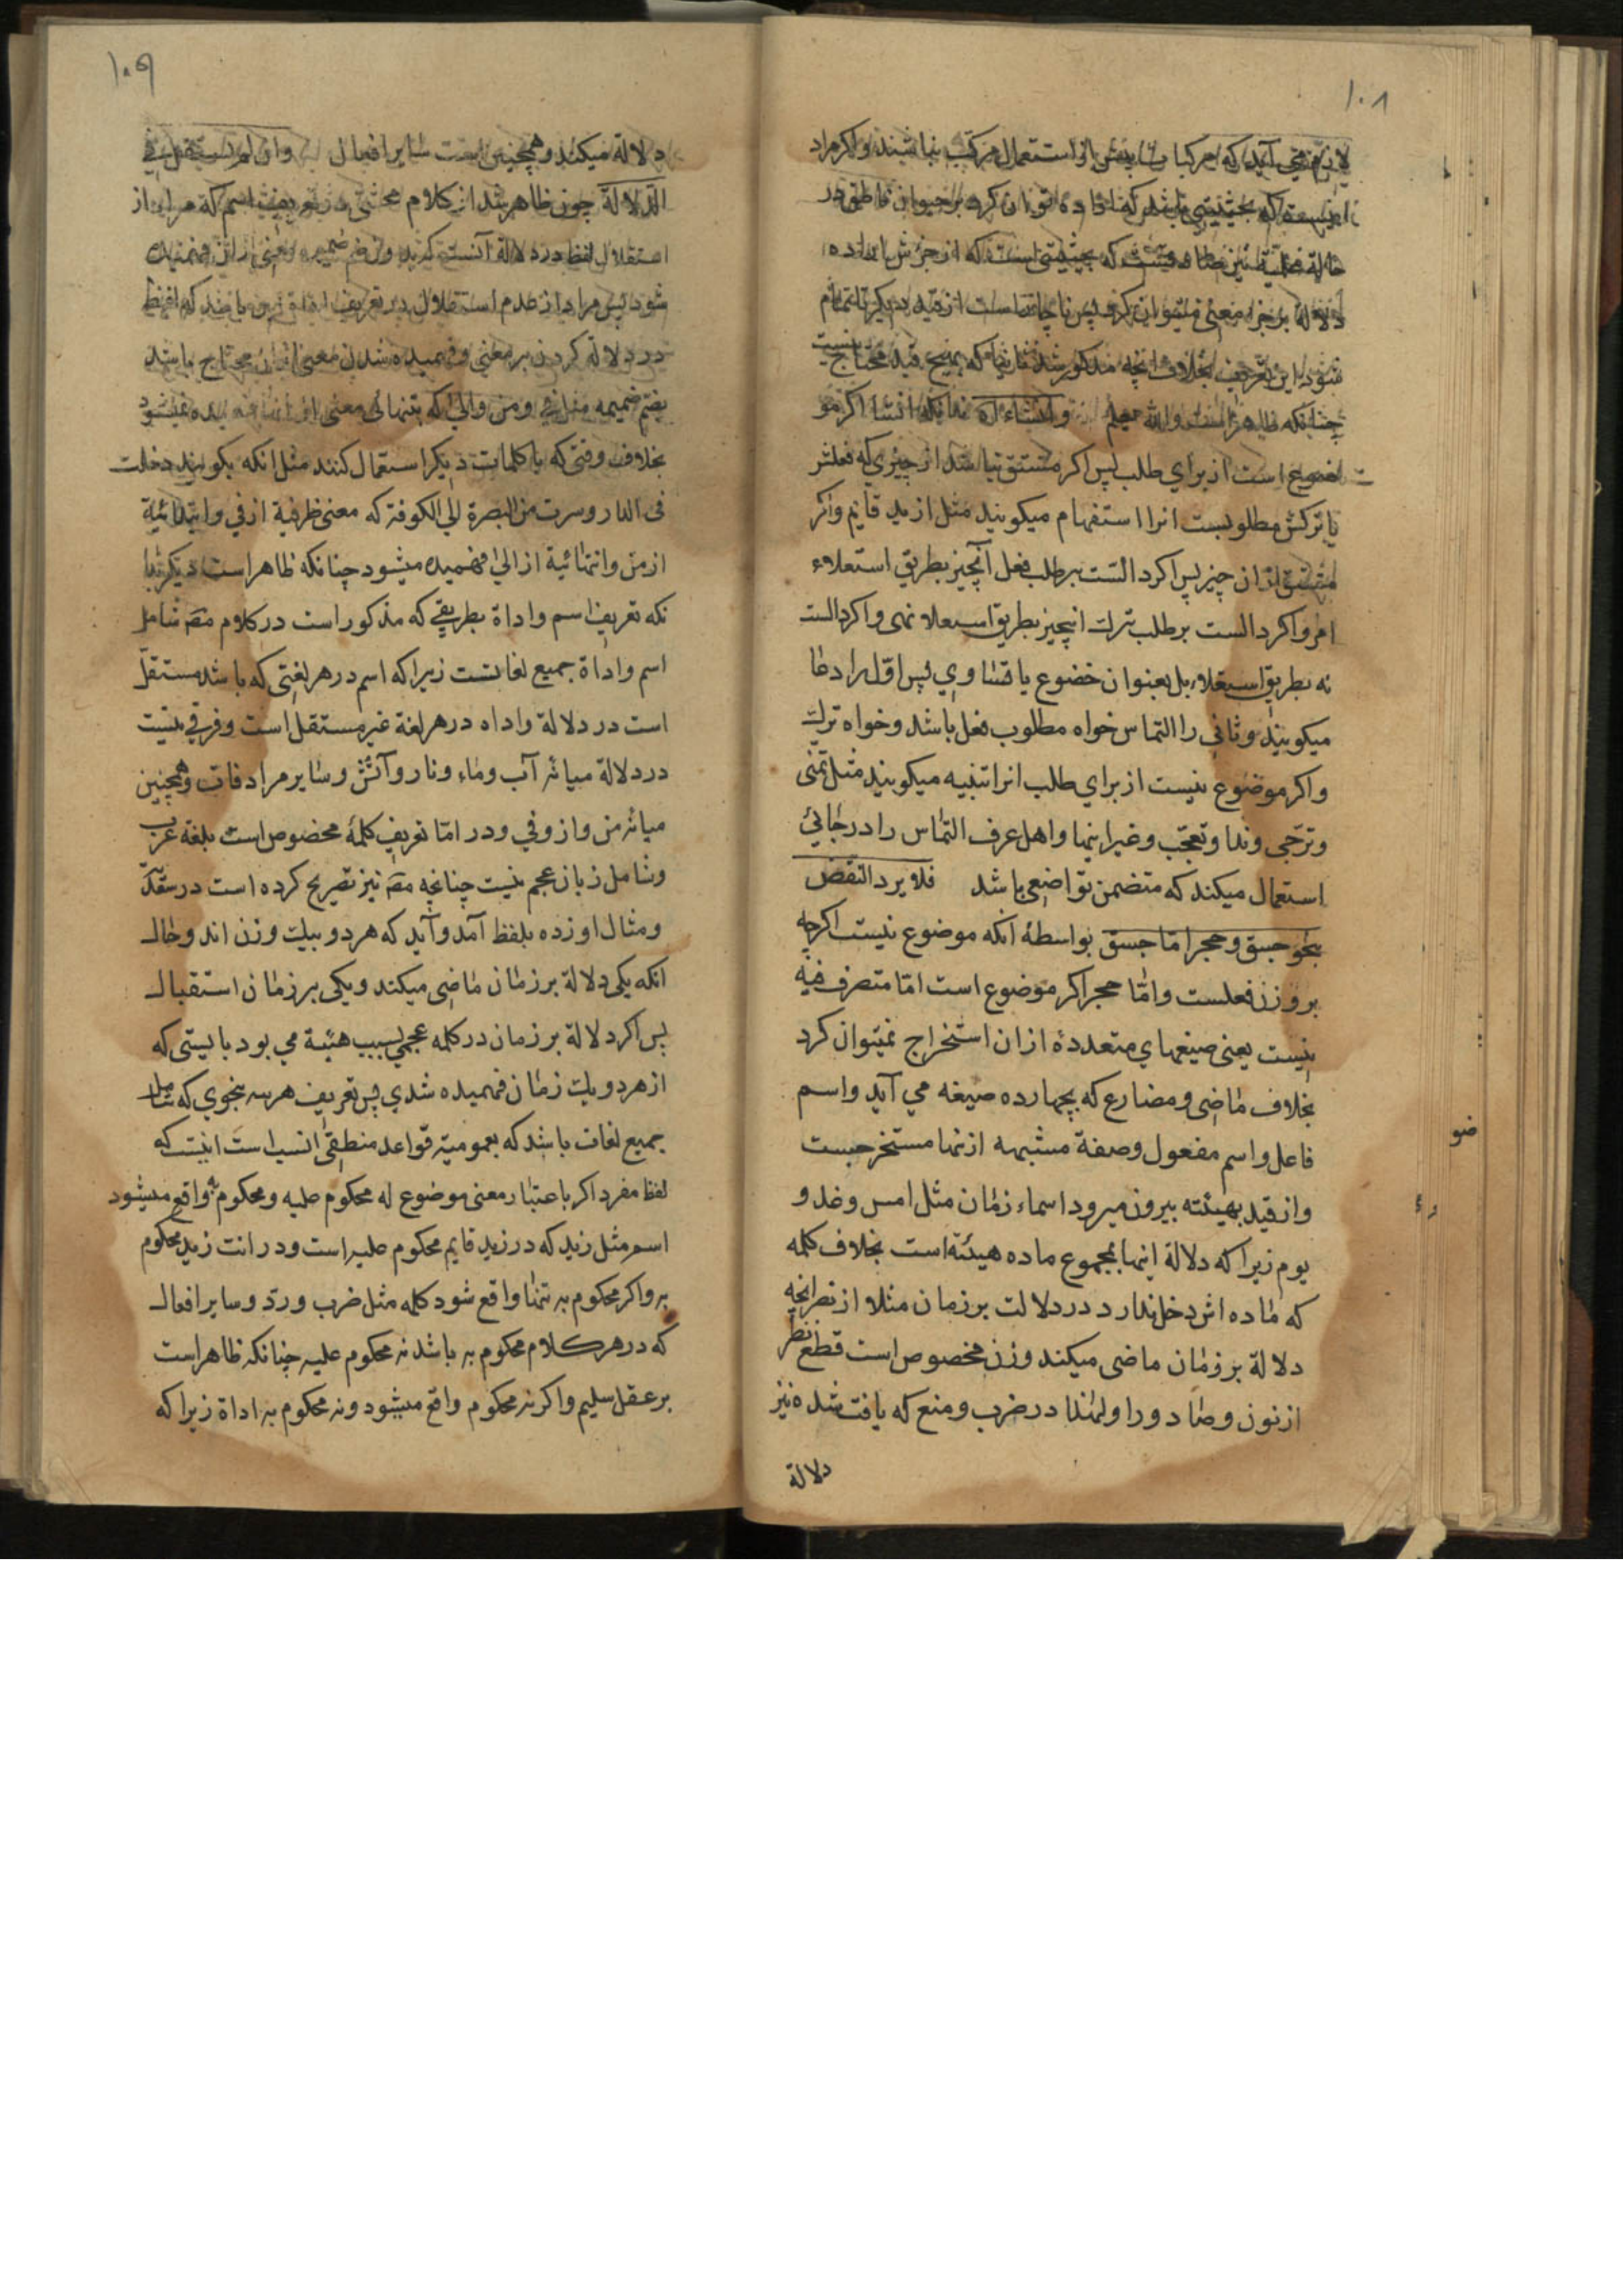 ۱۰۸
لازم می آید که مرکبات پیش از استعمال مرکب نباشند و اکر مراد
اینست که بحیثیتی باشد که افاده توان کرد بر حیوان ناطق در
دلالة بر جزء معنی نمیتوان کرد پس ناچار است از قید دیکر تا تمام
شود این تعریف بخلاف انچه مذکور شد که بهیچ قید محتاج نیست
چنانکه ظاهر است والله یعلم وانشاء بدانکه انشا اکر مو
ضوع است از برای طلب پس اکر مشتق نباشد از چیزی که فعلش
یا ترکش مطلوبست انرا استفهام میکویند مثل ازید قایم واکر
مشتق از ان چیز پس اکر دالست بر طلب فعل آنچیز بطریق استعلاء
امر واکر دالست بر طلب ترک انچیز بطریق استعلا نهی واکر دالست
نه بطریق استعلاء بل بعنوان خضوع یا تساوی پس اول را دعا
میکویند وثانی را التماس خواه مطلوب فعل باشد وخواه ترک
واکر موضوع نیست از برای طلب انرا تنبیه میکویند مثل تمنی
وترجی وندا وتعجب وغیر اینها واهل عرف التماس را در جائی
استعمال میکند که متضمن تواضعی باشد فلا یرد النقض
بنحو جسق وحجر اما جسق بواسطهٔ آنکه موضوع نیست اکرچه
بر وزن فعلست واما حجر اکر موضوع است اما متصرف فیه
نیست یعنی صیغهای متعددهٔ ازان استخراج نمیتوان کرد
بخلاف ماضی ومضارع که بچهارده صیغه می آید واسم
فاعل واسم مفعول وصفة مشبهه ازنها مستخرجست
وازقید بهیئته بیرون میرود اسماء زمان مثل امس وغد و
یوم زیرا که دلالة اینها بمجموع ماده هیئته است بخلاف کلمه
که ماده اش دخل ندارد در دلالت بر زمان مثلا از نصر انچه
دلالة بر زمان ماضی میکند وزن مخصوص است قطع نظر
ازنون وصاد ورا ولهذا در ضرب ومنع که یافت شده نیز
دلالة
۱۰۹
دلالة میکند وهمچنین است سایر افعال وان لم تستقل فی
الدلالة چون ظاهر شد از کلام محشی در تعریف اسم که مراد از
استقلال لفظ در دلالة آنست که بدون ضم ضمیمه معنی ازان فهمیده
شود پس مراد از عدم استقلال در تعریف اداة این باشد که لفظ
در دلالة کردن بر معنی وفهمیده شدن معنی ازان محتاج باشد
بضم ضمیمه مثل فی ومن والی که بتنهائی معنی از انها فهمیده نمیشود
بخلاف وقتی که با کلمات دیکر استعمال کنند مثل انکه بکویند دخلت
فی الدار وسرت من البصرة الی الکوفة که معنی ظرفیة از فی وابتدائیة
از من وانتهائیة از الی فهمیده میشود چنانکه ظاهر است دیکر بدا
نکه تعریف اسم واداة بطریقی که مذکور است در کلام مصّ شامل
اسم واداة جمیع لغاتست زیرا که اسم در هر لغتی که باشد مستقل
است در دلالة واداه در هر لغة غیر مستقل است وفرقی نیست
در دلالة میانه آب وماء ونار وآتش وسایر مرادفات وهمچنین
میانه من واز وفی ودر امّا تعریف کلمهٔ مخصوص است بلغة عرب
وشامل زبان عجم نیست چنانچه مصّ نیز تصریح کرده است در
ومثال اورده بلفظ آمد وآید که هر دو بیک وزن اند وحال
انکه یکی دلالة بر زمان ماضی میکند ویکی بر زمان استقبال
پس اکر دلالة بر زمان در کلمه عجمی بسبب هیئة می بود بایستی که
از هر دو یک زمان فهمیده شدی پس تعریف هر سه بنحوی که شامل
جمیع لغات باشد که بعمومیة قواعد منطقی انسب است اینست که
لفظ مفرد اکر باعتبار معنی موضوع له محکوم علیه ومحکوم به واقع میشود
اسم مثل زید که در زید قایم محکوم علیه است ودر انت زید محکوم
به واکر محکوم به تنها واقع شود کلمه مثل ضرب وردّ وسایر افعال
که در هر کلام محکوم به باشد نه محکوم علیه چنانکه ظاهر است
بر عقل سلیم واکر نه محکوم واقع میشود ونه محکوم به اداة زیرا که